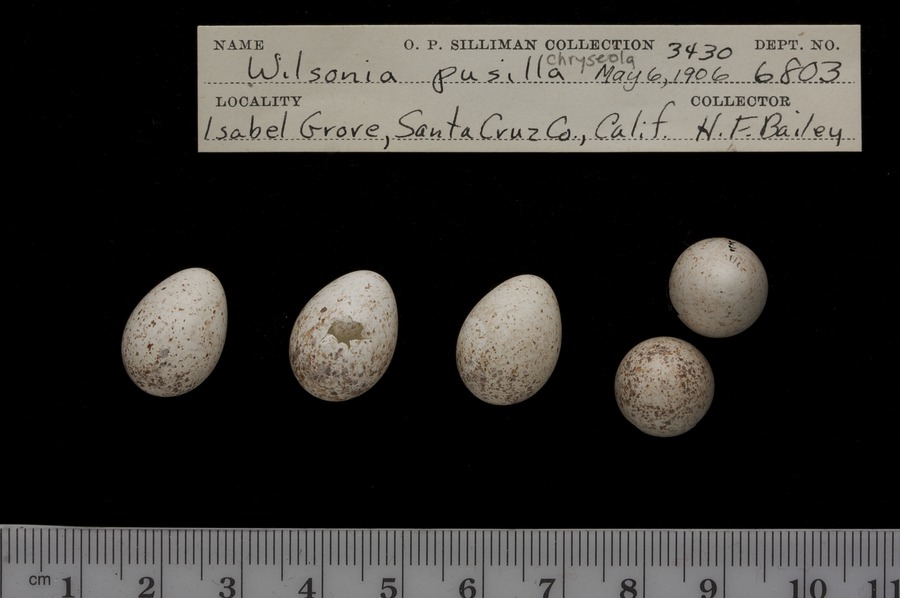 NAME O. P. SILLIMAN COLLECTION 3430 DEPT. NO.
chryseola
Wilsonia pusilla May 6, 1906 6803
LOCALITY COLLECTOR
Isabel Grove, Santa Cruz Co., Calif. H. F. Bailey
cm 1 2 3 4 5 6 7 8 9 10 11